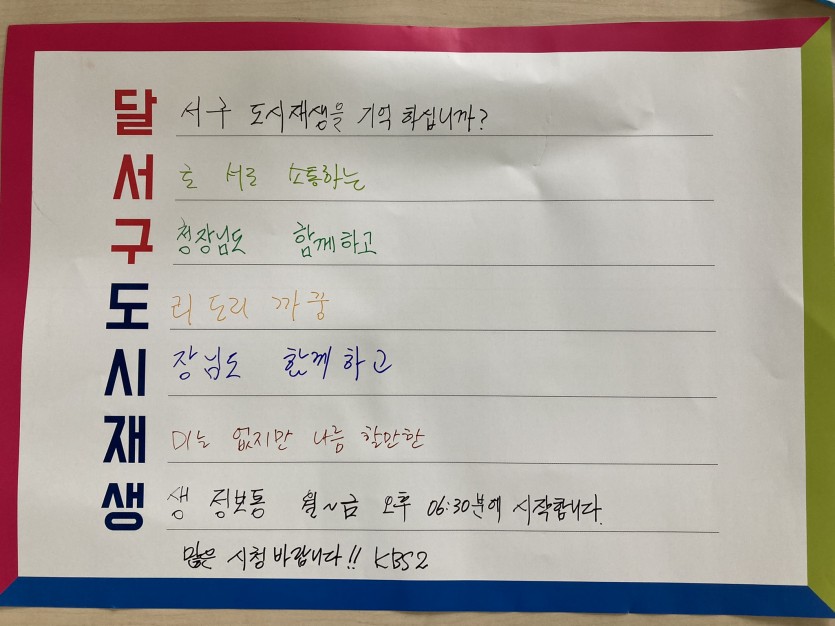 달 서구 도시재생을 기억 하십니까?
서 로 서로 소통하는
구 청장님도 함께하고
도 리 도리 까꿍
시 장님도 함께하고
재 미는 없지만 나름 할만한
생 생 정보통 월~금 오후 06:30분에 시작합니다.
많은 시청바랍니다!! KBS2